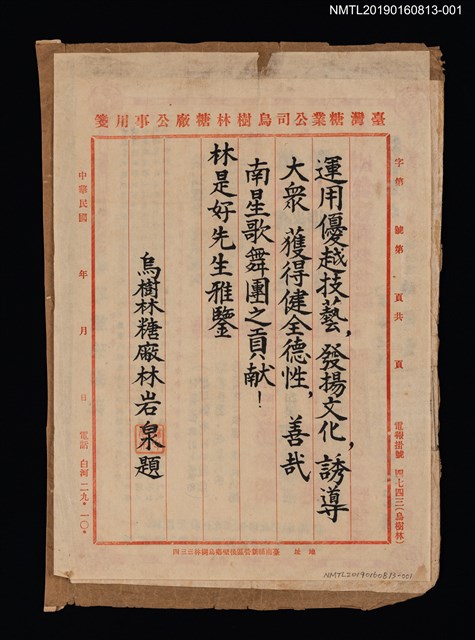 NMTL20190160813-001
臺灣糖業公司烏樹林糖廠公事用箋
字第 號第 頁共 頁
電報掛號 四七四三(烏樹林)
運用優越技藝,發揚文化,誘導
大衆 獲得健全德性,善哉
南星歌舞團之貢献!
林是好先生雅鑒
烏樹林糖廠林岩泉題
中華民國 年 月 日 電話 白河 二九·一〇·
NMTL20190160813-001